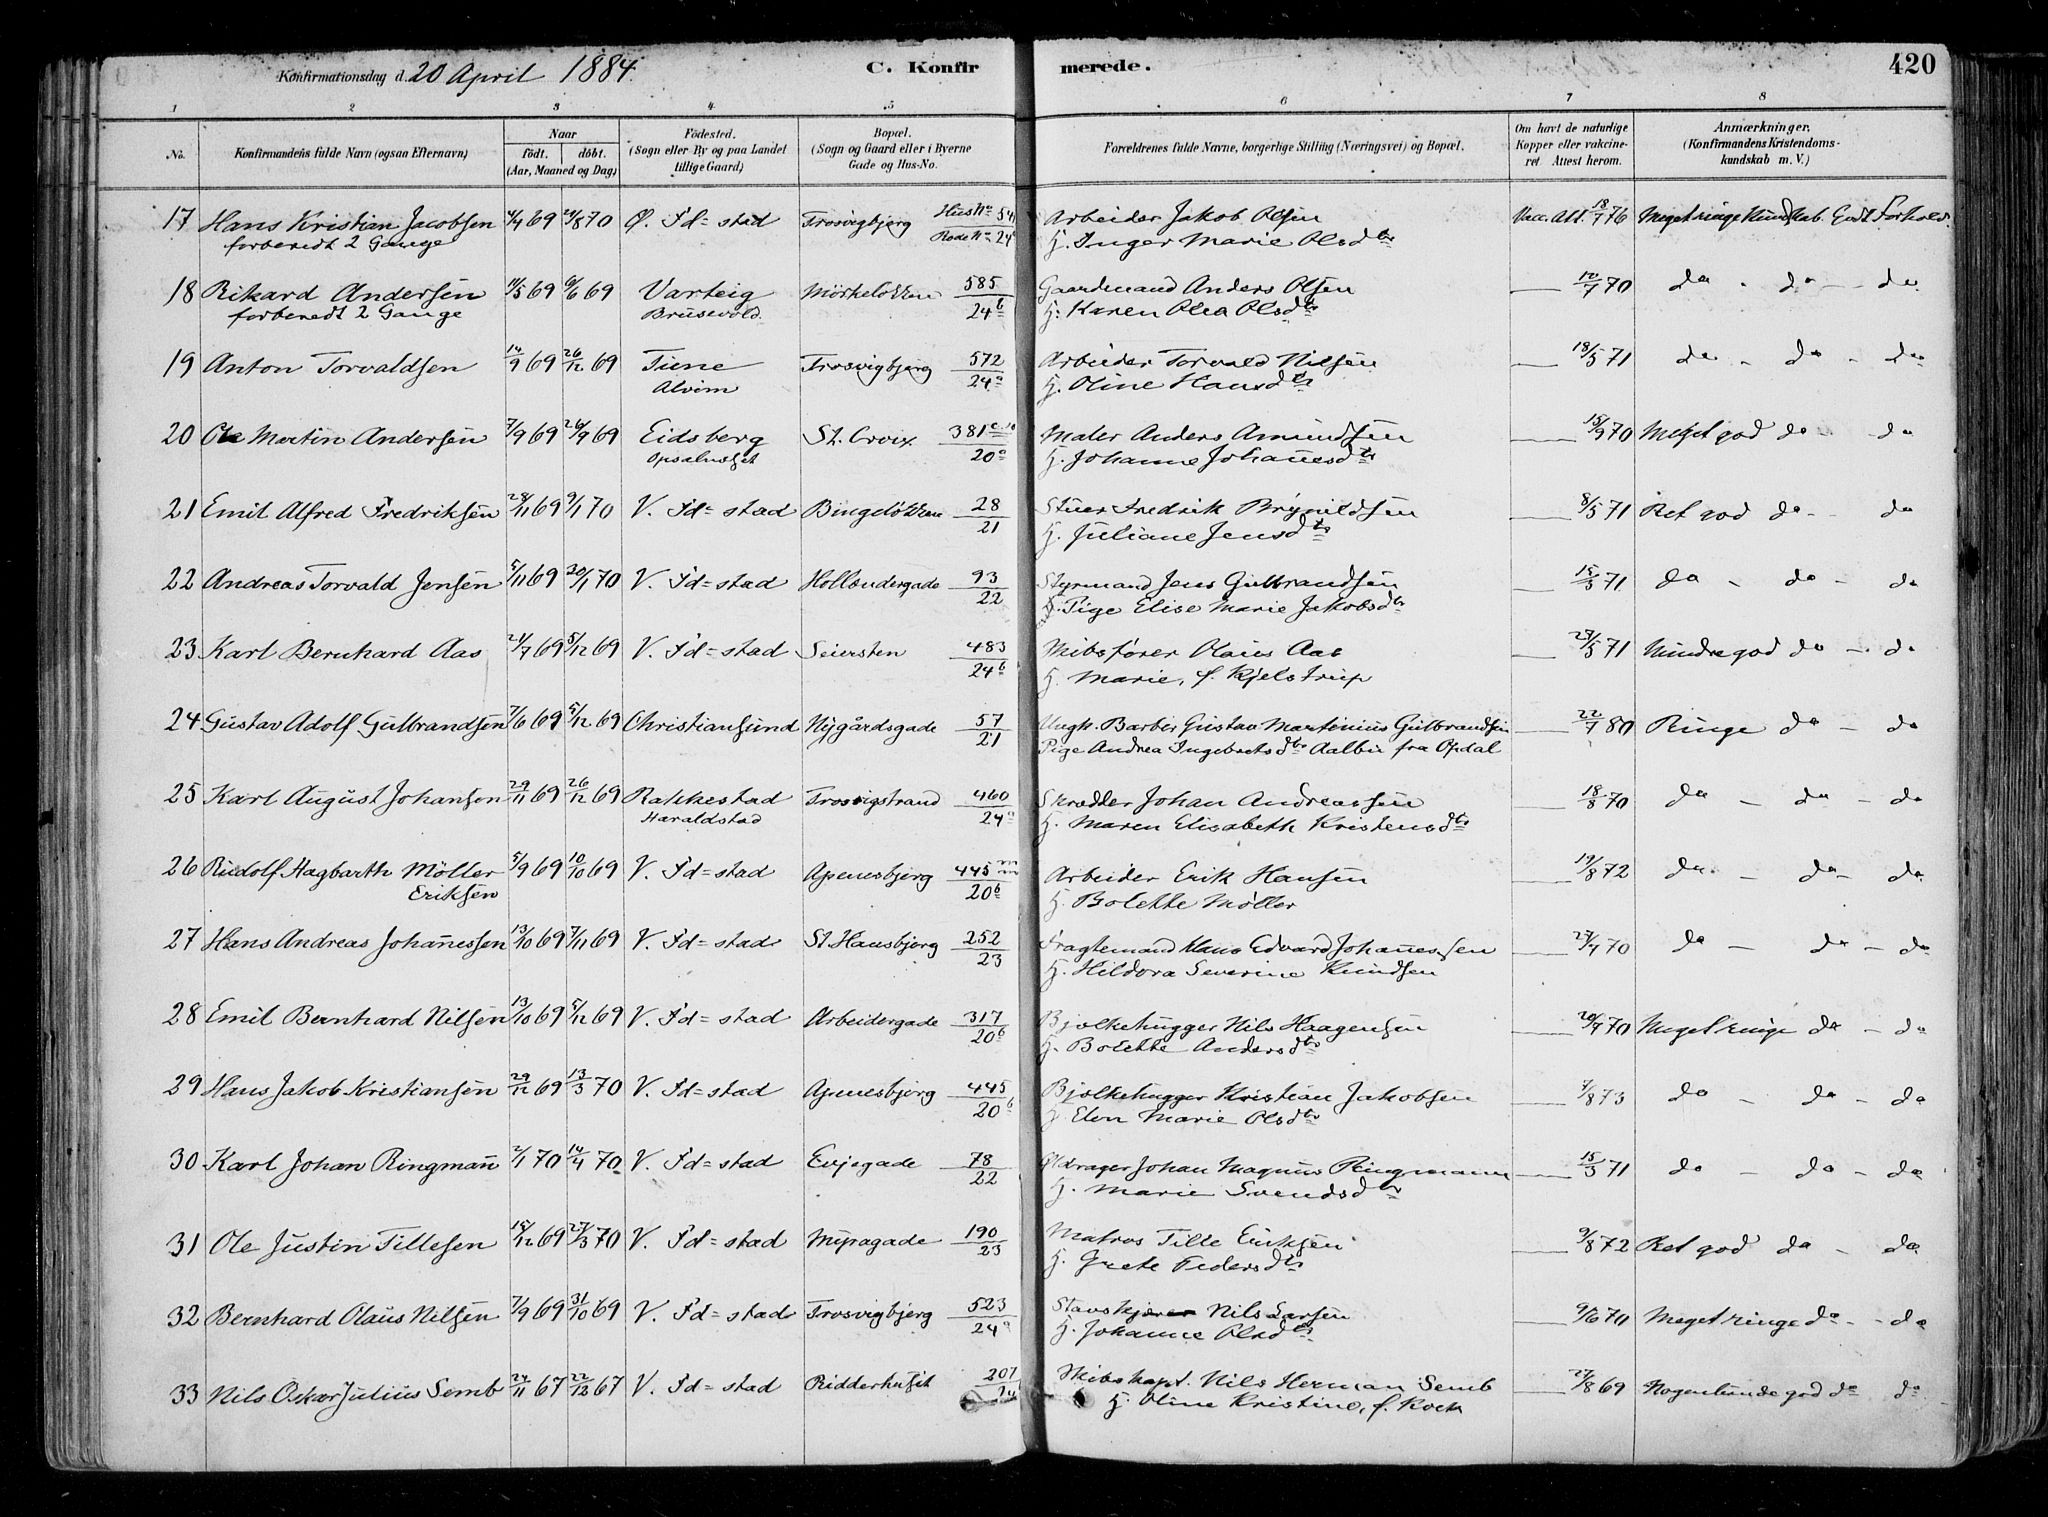 Konfirmationsdag d. 20 April 1884. C. Konfirmerede. 420
1 2 3 4 5 6 7 8
No. Konfirmandens fulde Navn (ogsaa Efternavn) Naar födt. döbt. (Aar, Maaned og Dag) Födested. (Sogn eller By og paa Landet tillige Gaard) Bopæl. (Sogn og Gaard eller i Byerne Gade og Hus-No. Forældrenes fulde Navne, borgerlige Stilling (Næringsvei) og Bopæl. Om havt de naturlige Kopper eller vakcineret Attest herom. Anmærkninger. (Konfirmandens Kristendomskundskab m. V.)
17 Hans Kristian Jacobsen 4/4 69 29/8 70 Ø. Fd=stad Trosvigbjerg Hus No 54 Arbeider Jakob Olsen Vacc. Att. 18/7 76 Meget ringe Kundskab. Godt Forhold.
forberedt 2 Gange Rode No 24 H. Inger Marie Olsdtr
18 Rikard Andersen 11/5 69 6/6 69 Varteig Mörkeløkken 585 Gaardmand Anders Olsen 12/7 70 do - do - do
forberedt 2 Gange Brusevold. 24b H. Karen Olea Olsdtr
19 Anton Torvaldsen 14/9 69 26/12 69 Tune Trosvigbjerg 572 Arbeider Torvald Nilsen 18/5 71 do - do - do
Alvim 24a H. Oline Hansdtr
20 Ole Martin Andersen 7/9 69 26/9 69 Eidsberg St. Croix 381 Maler Anders Amundsen 15/9 70 Meget god do - do
20a H. Johanne Johanesdtr
21 Emil Alfred Fredriksen 28/11 69 9/1 70 V. Fd=stad Bingeløkken 28 Stuer Fredrik Brynildsen 8/5 71 Ret god do - do
21 H. Juliane Jensdtr
22 Andreas Torvald Jensen 5/11 69 30/1 70 V. Fd=stad Hollendergade 93 Styrmand Jens Gulbrandsen 15/3 71 do - do - do
22 Pige Elise Marie Jakobsdtr
23 Karl Bernhard Aas 21/7 69 5/12 69 V. Fd=stad Seiersten 483 Skibsfører Olaus Aas 23/5 71 Mindre god do - do
24b H. Marie, f. Kjelstrup
24 Gustav Adolf Gulbrandsen 7/6 69 5/12 69 Christiansund Nygårdsgade 57 Ungk. Barber Gustav Martinius Gulbrandsen 22/7 80 Ringe do - do
21 Pige Andrea Ingebretsdtr Aalbu fra Opdal
25 Karl August Johansen 29/11 69 26/12 69 Rakkestad Trosvigstrand 460 Skrædder Johan Andreassen 18/8 70 do - do - do
Haraldstad 24a H. Maren Elisabeth Kristensdtr
26 Rudolf Hagbarth Möller 5/9 69 10/10 69 V. Fd=stad Apenesbjerg 445 Arbeider Erik Hansen 19/8 72 do - do - do
Eriksen 20b H. Bolette Møller
27 Hans Andreas Johanessen 13/10 69 7/11 69 V. Fd=stad St. Hansbjerg 252 Fragtemand Hans Edvard Johanessen 27/4 70 do - do - do
23 H. Hildora Severine Knudsen
28 Emil Bernhard Nilsen 13/10 69 5/12 69 V. Fd=stad Arbeidergade 317 Bjelkehugger Nils Haagensen 20/7 70 Meget ringe do - do
20b H. Bolette Andersdtr
29 Hans Jakob Kristiansen 29/12 69 13/3 70 V. Fd=stad Apenesbjerg 445 Bjelkehugger Kristian Jakobsen 7/8 73 do - do - do
20b H. Elen Marie Olsdtr
30 Karl Johan Ringman 2/1 70 14/4 70 V. Fd=stad Evjegade 78 Øldrager Johan Magnus Ringmann 15/3 71 do - do - do
22 H. Marie Svendsdtr
31 Ole Justin Tillesen 15/12 69 27/3 70 V. Fd=stad Myragade 190 Matros Tille Eriksen 9/8 72 Ret god do - do
23 H. Grete Pedersdtr
32 Bernhard Olaus Nilsen 7/9 69 31/10 69 V. Fd=stad Trosvigbjerg 523 Nils Larsen 9/6 70 Meget ringe do - do
24a H. Johanne Olsdtr
33 Nils Oskar Julius Semb 24/11 67 22/12 67 V. Fd=stad Ridderhuset 207 Skibskapt. Nils Herman Semb 27/8 69 Nogenlunde god do do
24 H. Oline Kristine, f. Kock